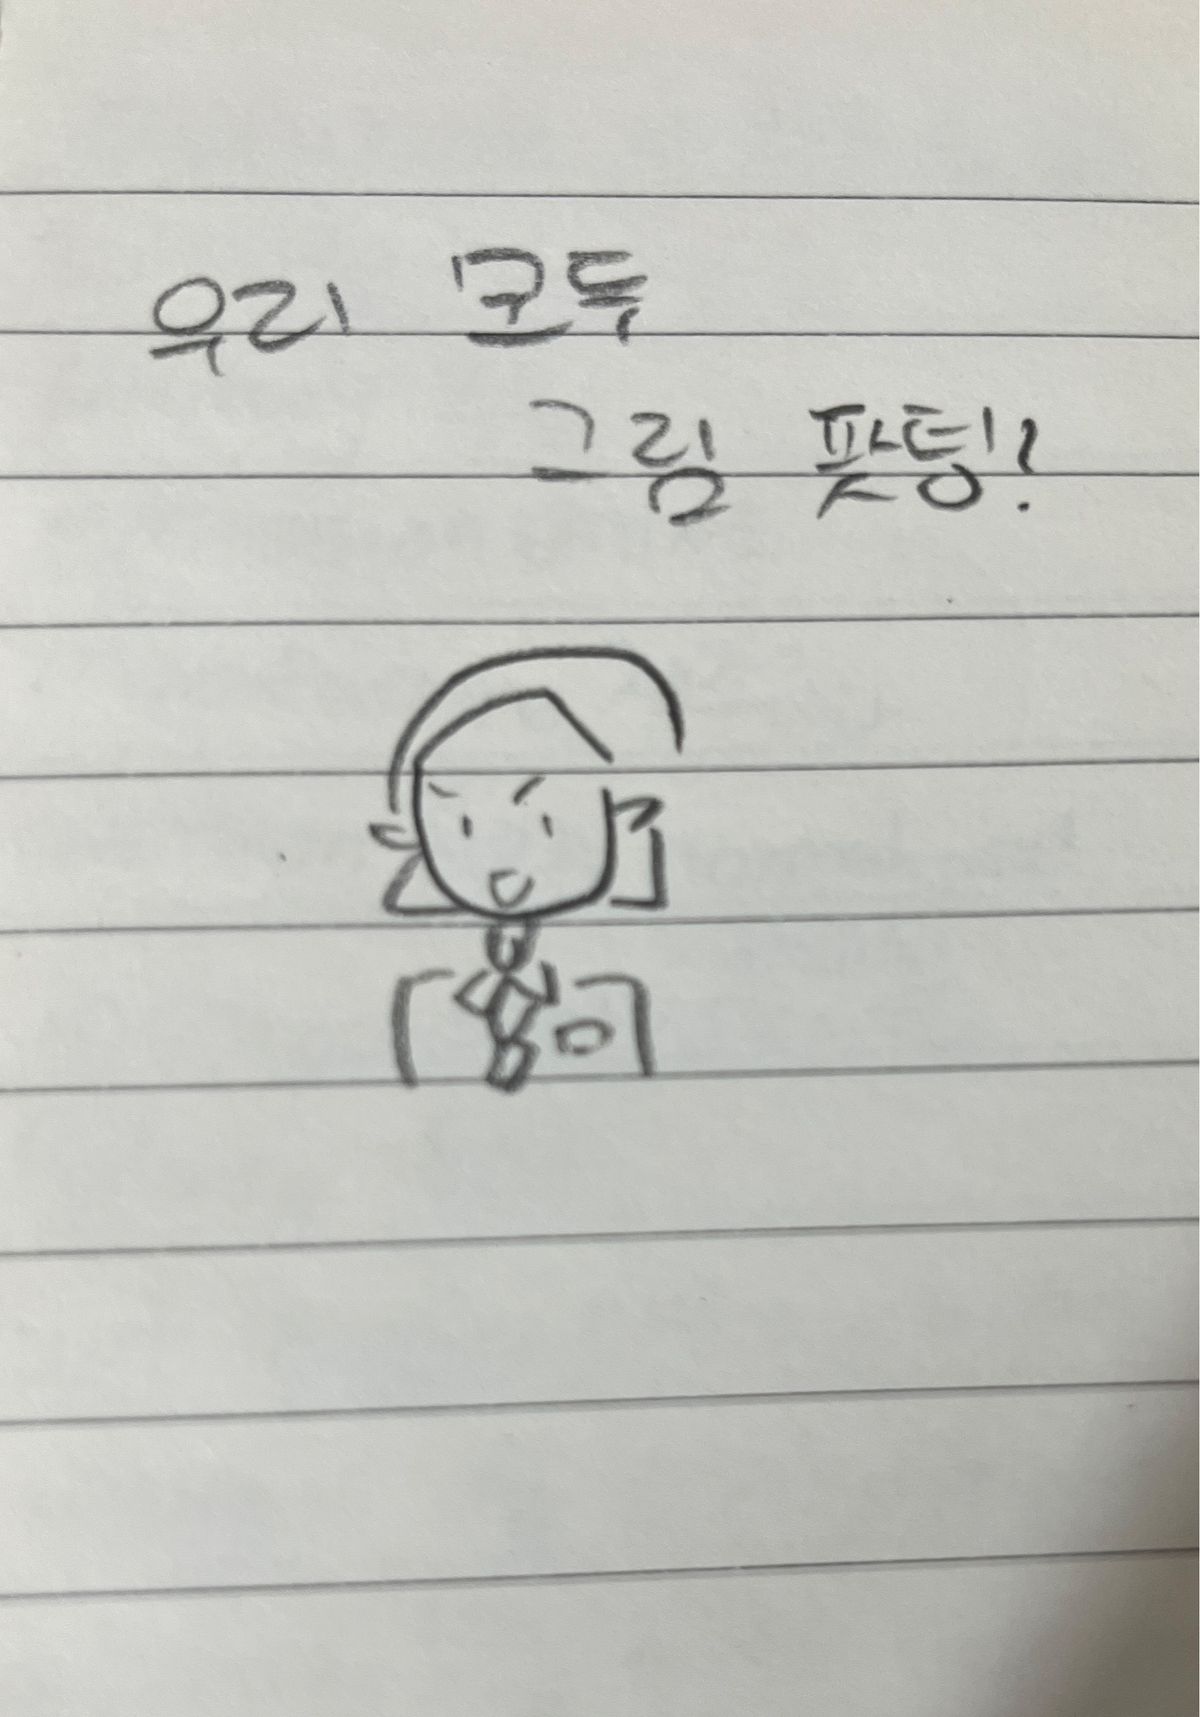 우리 모두
그림 퐛팅!